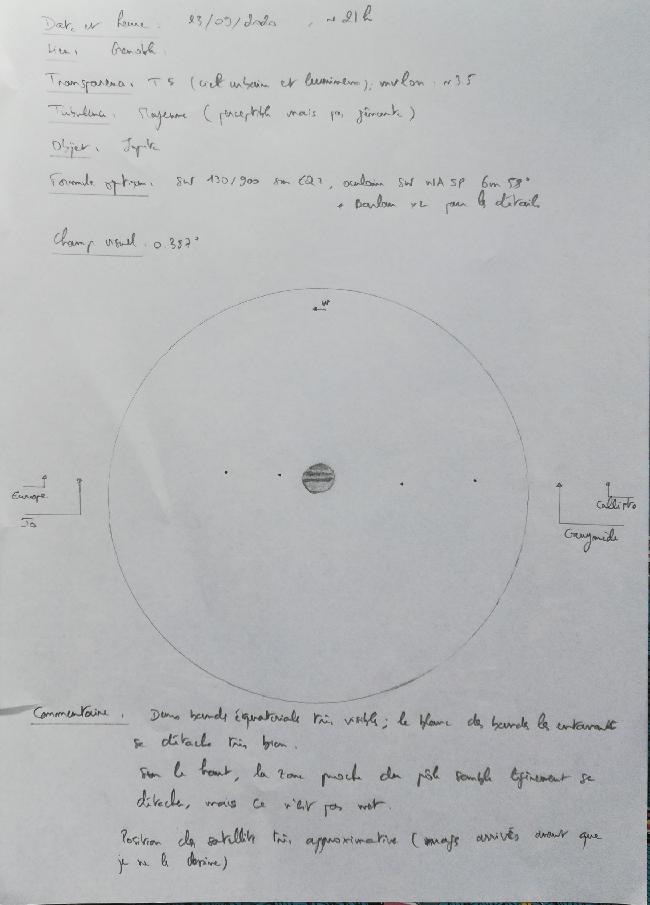 Date et heure : 23/09/2020 , ~ 21h
Lieu : Grenoble.
Transparence : T5 (ciel urbain et lumineux) ; mvlon : ~3.5
Turbulence : Moyenne (perceptible mais pas gênante)
Objet : Jupiter
Formule optique : SW 130/900 sur EQ2, oculaire SW WA SP 6mm 58°
+ Barlow x2 pour les détails
Champ visuel : 0.387°
W
Europe
Io
Callisto
Ganymède
Commentaire : Deux bandes équatoriales très visibles ; le blanc des bandes les entourant
se détache très bien.
Sur le haut, la zone proche du pôle semble légèrement se
détacher, mais ce n'est pas net.
Position des satellites très approximative (nuages arrivés avant que
je ne les dessine)